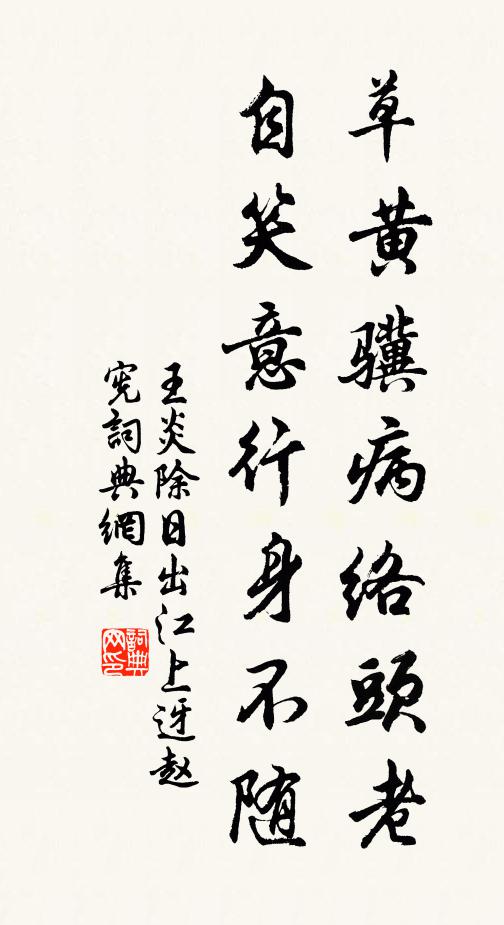 草黄骥病络頭老
自笑意行身不随
王炎除日出江上迓赵
宪詞典網集
詞典网印